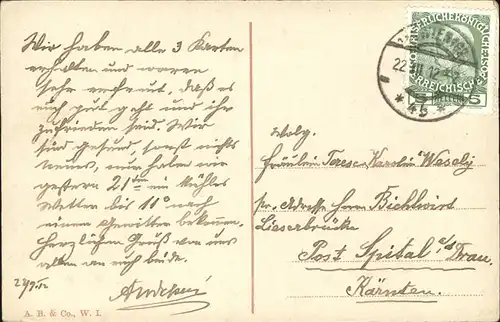 Wir haben alle 3 Karten
erhalten und waren
sehr erfreut, daß es
euch gut geht und ihr
zufrieden seid. Wir
sind gesund, sonst nichts
neues, nur haben wir
gestern 21 ein kühles
Wetter bis 11° nach
einem Gewitter bekommen.
Herzlichen Gruß von uns
allen an euch beide.
A. B. & Co., W. I.
KAISERLICHEKÖNIGLICHE
ÖSTERREICHISCHE
5 HELLER 5
WIEN
22. VII. 12
* 4b *
Wolg.
Fräulein Terese Karolin Wesely
pr. Adresse Herrn Bichlwirt
Lieserbrücke
Post Spital a/d Drau.
Kärnten.